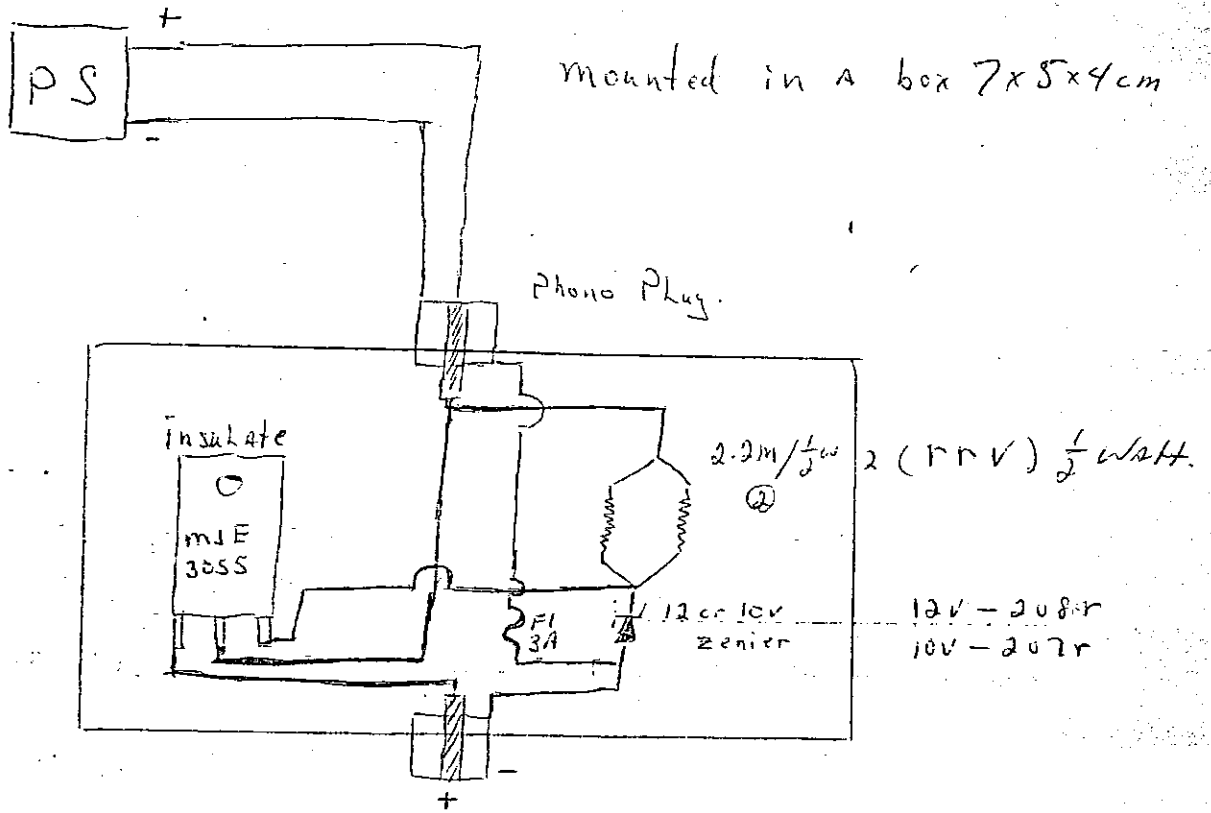 +
PS
-
mounted in A box 7x5x4cm
Phono Plug.
insulate
MJE
3055
2.2m/½w 2 (rrv) ½ watt.
②
F1
3A
12 or 10v
zenier
12v - 208r
10v - 207r
-
+